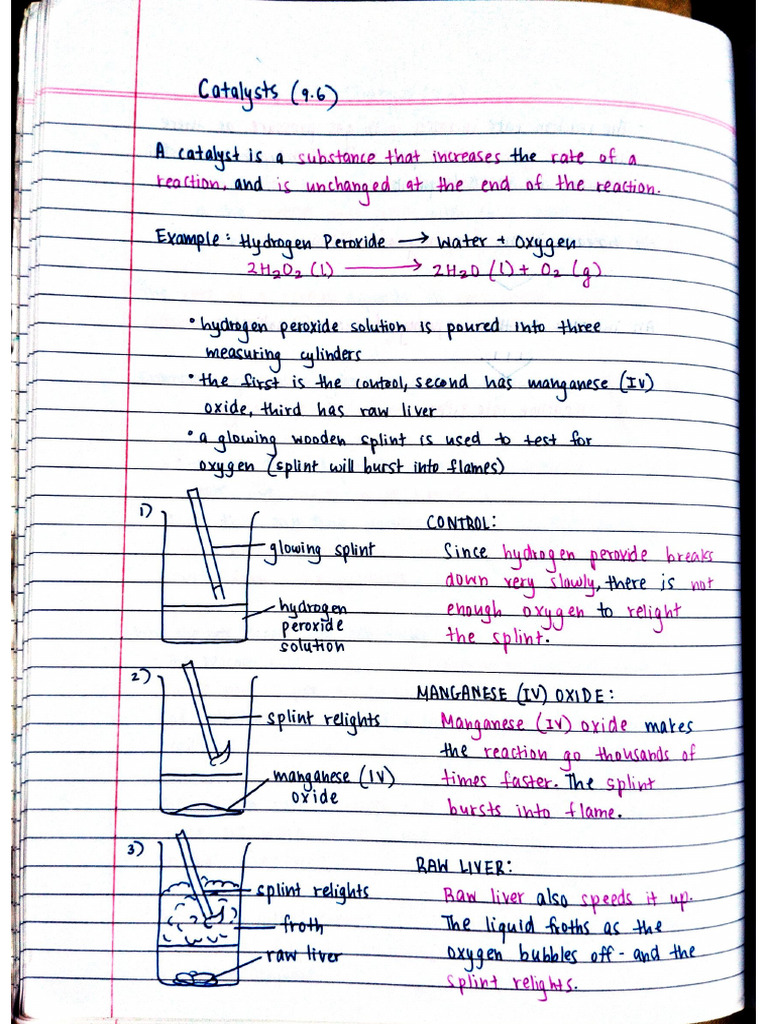 Catalysts (9.6)
A catalyst is a substance that increases the rate of a
reaction, and is unchanged at the end of the reaction.
Example: Hydrogen Peroxide → Water + Oxygen
2H₂O₂ (l) → 2H₂O (l) + O₂ (g)
• hydrogen peroxide solution is poured into three
measuring cylinders
• the first is the control, second has manganese (IV)
oxide, third has raw liver
• a glowing wooden splint is used to test for
oxygen (splint will burst into flames)
1)
glowing splint
hydrogen
peroxide
solution
CONTROL:
Since hydrogen peroxide breaks
down very slowly, there is not
enough oxygen to relight
the splint.
2)
splint relights
manganese (IV)
oxide
MANGANESE (IV) OXIDE:
Manganese (IV) oxide makes
the reaction go thousands of
times faster. The splint
bursts into flame.
3)
splint relights
froth
raw liver
RAW LIVER:
Raw liver also speeds it up.
The liquid froths as the
oxygen bubbles off - and the
splint relights.